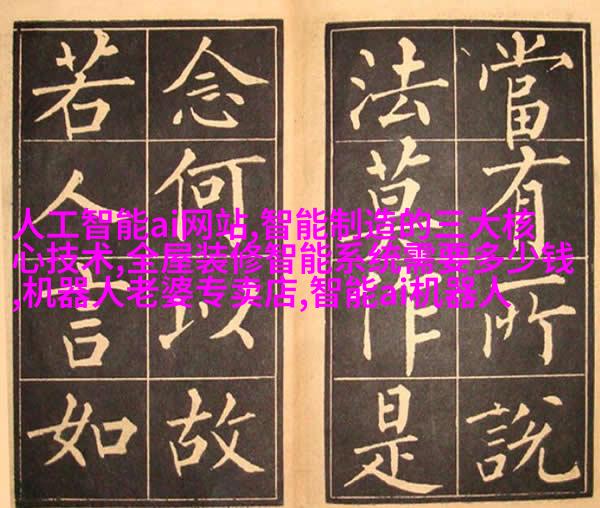 當有所說
法莫作是
念何以故
若人言如
人工智能ai网站,智能制造的三大核
心技术,全屋装修智能系统需要多少钱
,机器人老婆专卖店,智能ai机器人